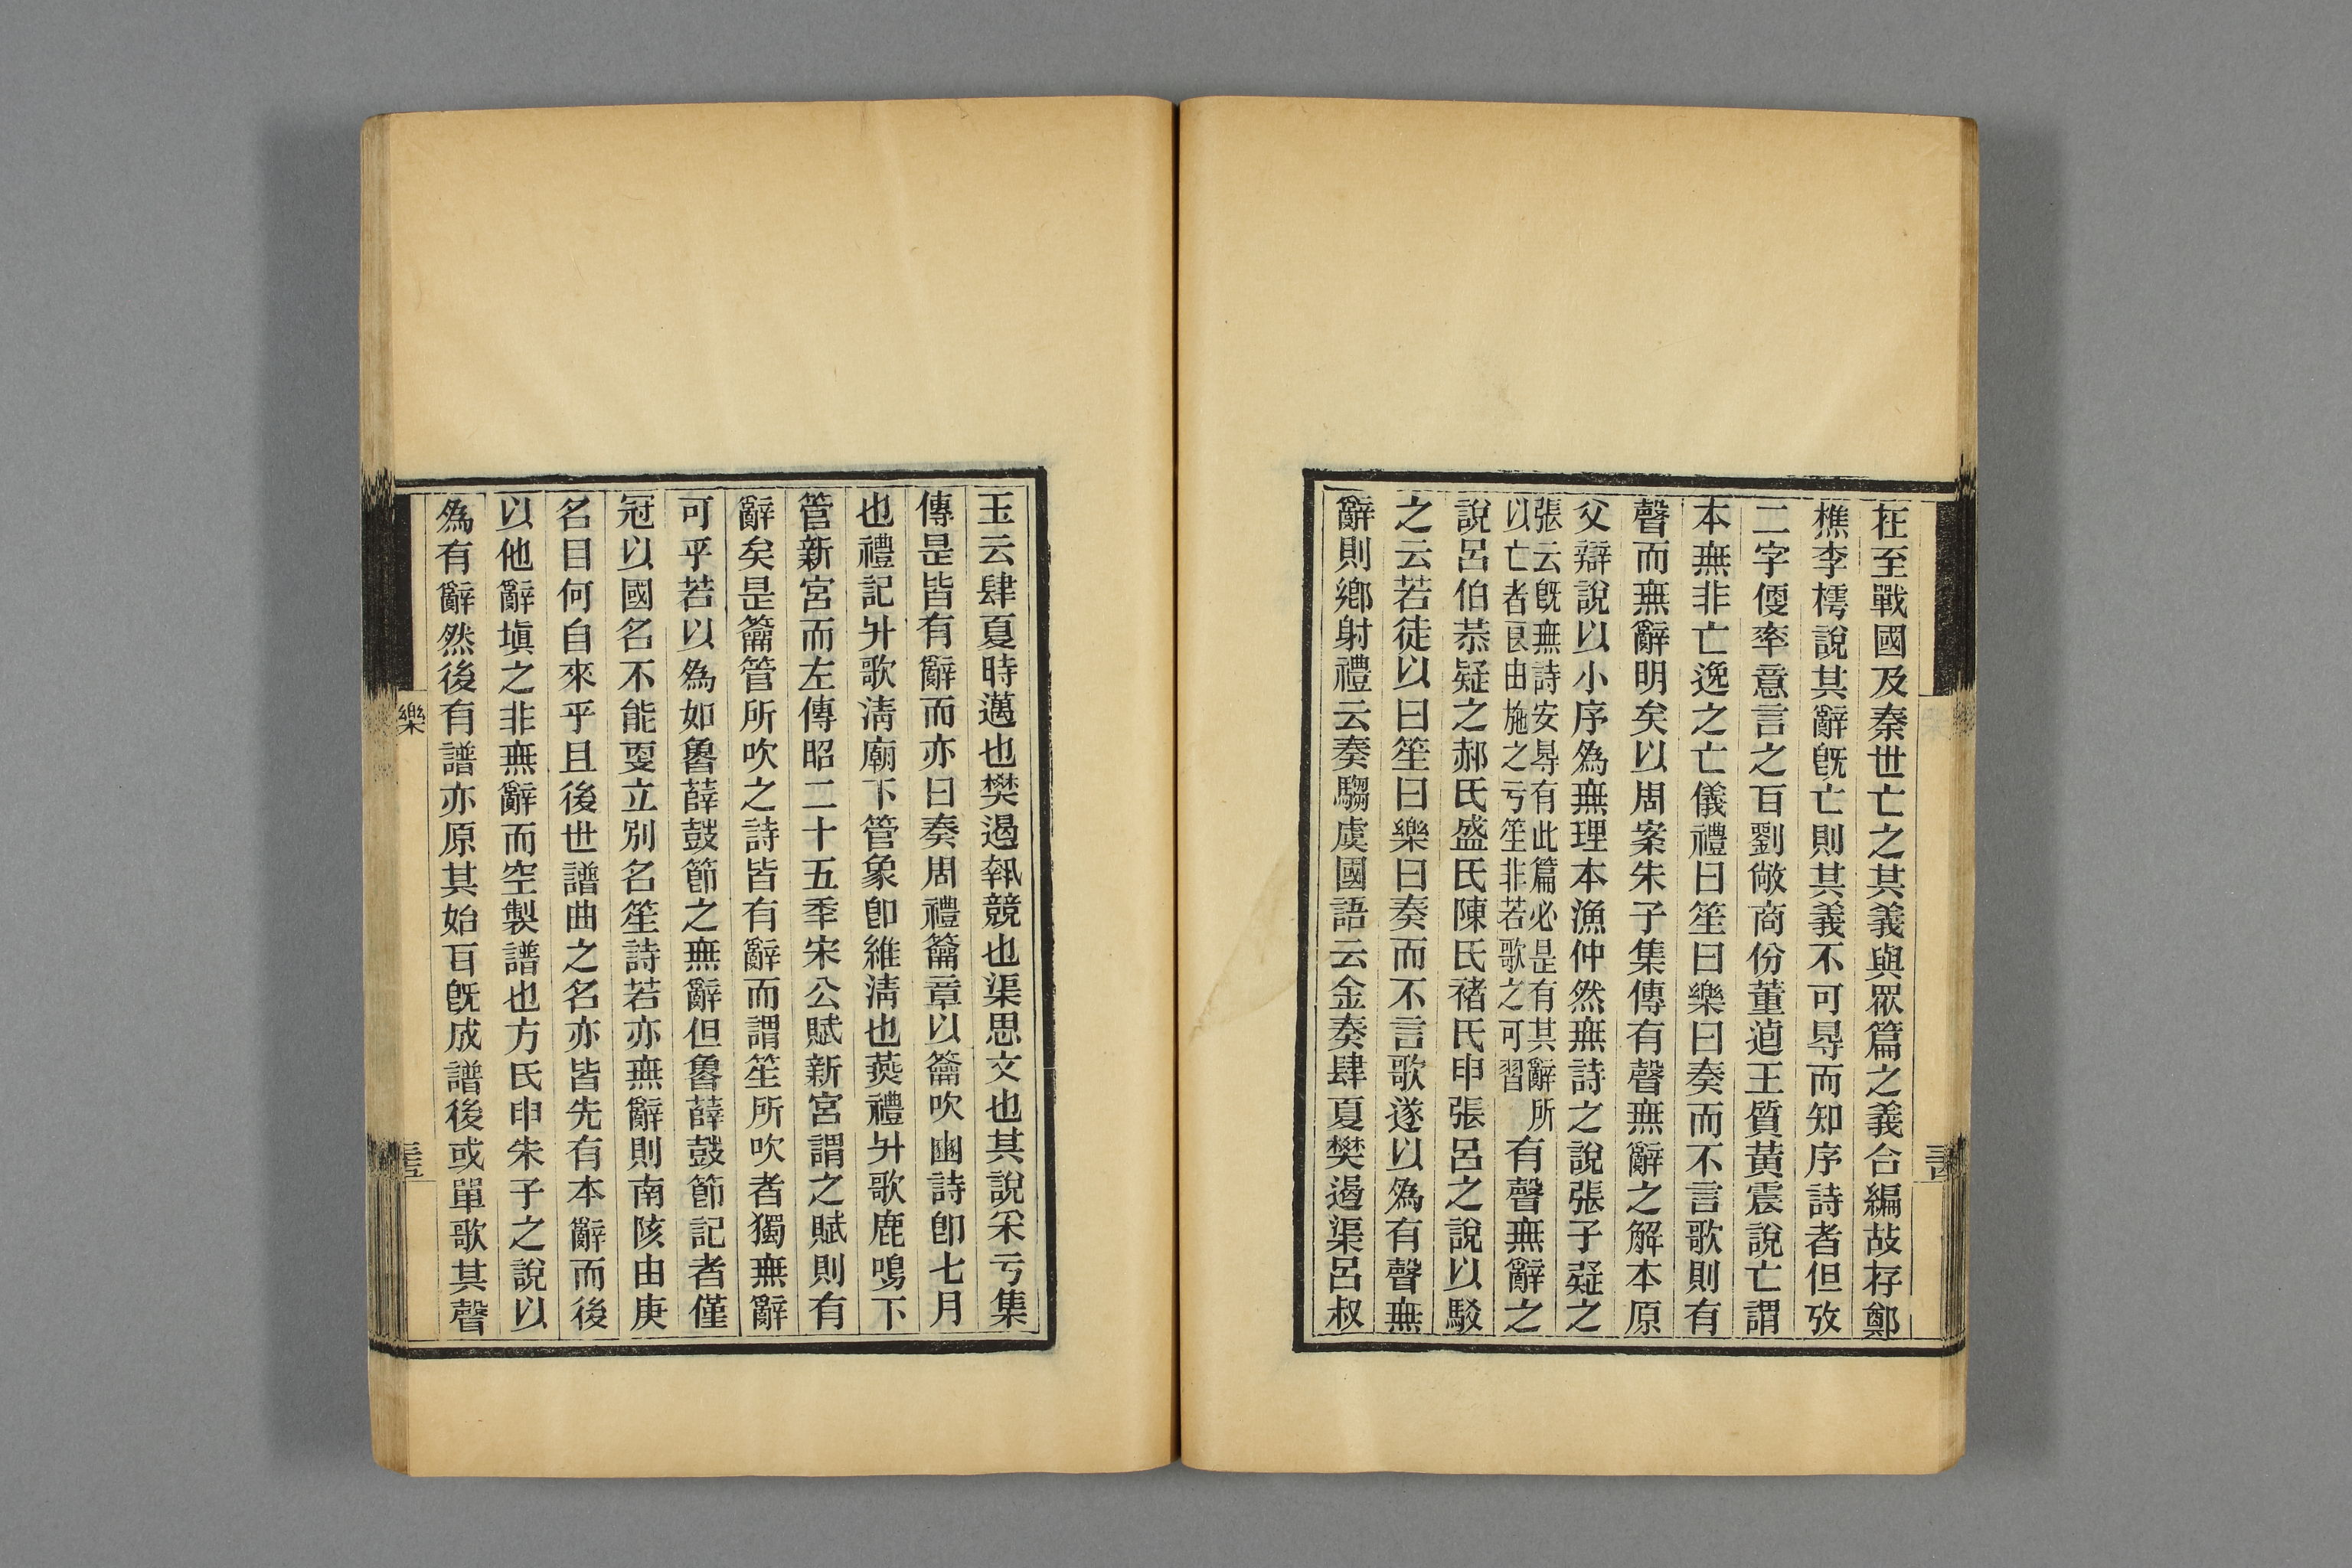 在至戰國及秦世亡之其義與眾篇之義合編故存鄭
樵李樗說其辭旣亡則其義不可㝵而知序詩者但攷
二字便率意言之百劉敞商份董逌王質黃震說亡謂
本無非亡逸之亡儀禮曰笙曰樂曰奏而不言歌則有
聲而無辭明矣以周案朱子集傳有聲無辭之解本原
父辯說以小序為無理本漁仲然無詩之說張子疑之
張云旣無詩安㝵有此篇必是有其辭所
以亡者良由施之亏笙非若歌之可習
有聲無辭之
說呂伯恭疑之郝氏盛氏陳氏褚氏申張呂之說以駁
之云若徒以曰笙曰樂曰奏而不言歌遂以為有聲無
辭則鄉射禮云奏騶虞國語云金奏肆夏樊遏渠呂叔
玉云肆夏時邁也樊遏執競也渠思文也其說采亏集
傳是皆有辭而亦曰奏周禮籥章以籥吹豳詩卽七月
也禮記升歌淸廟下管象卽維淸也燕禮升歌鹿鳴下
管新宮而左傳昭二十五秊宋公賦新宮謂之賦則有
辭矣是籥管所吹之詩皆有辭而謂笙所吹者獨無辭
可乎若以為如魯薛鼓節之無辭但魯薛鼓節記者僅
冠以國名不能更立別名笙詩若亦無辭則南陔由庚
名目何自來乎且後世譜曲之名亦皆先有本辭而後
以他辭塡之非無辭而空製譜也方氏申朱子之說以
為有辭然後有譜亦原其始百旣成譜後或單歌其聲
樂